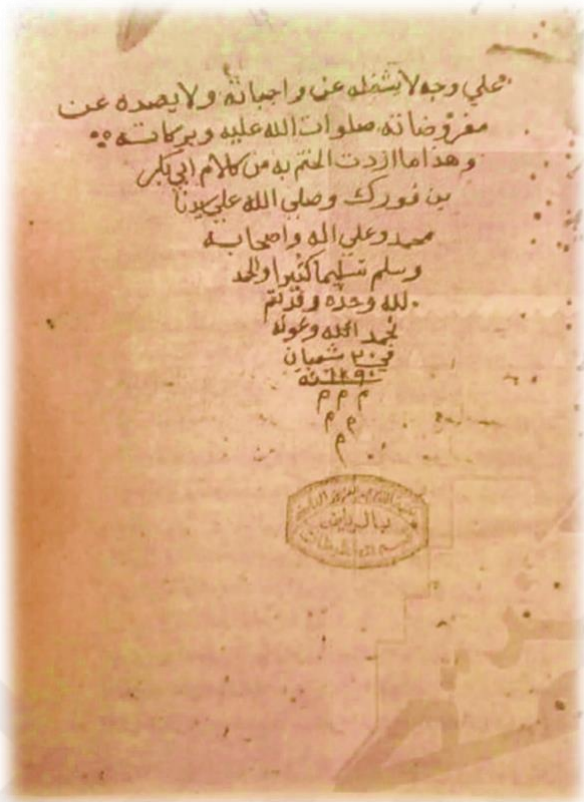 علي وجه لا يشغله عن واجباته ولا يصده عن
مفروضاته صلوات الله عليه وبركاته
وهذا ما اردت الختم به من كلام ابي بكر
بن فورك وصلي الله علي سيدنا
محمد وعلي اله واصحابه
وسلم تسليما كثيرا والحمد
لله وحده وقد تم
بحمد الله وعونه
في ٢٠ شعبان
سنة ١٢٩٠
م م م
م م
م
بالرياض